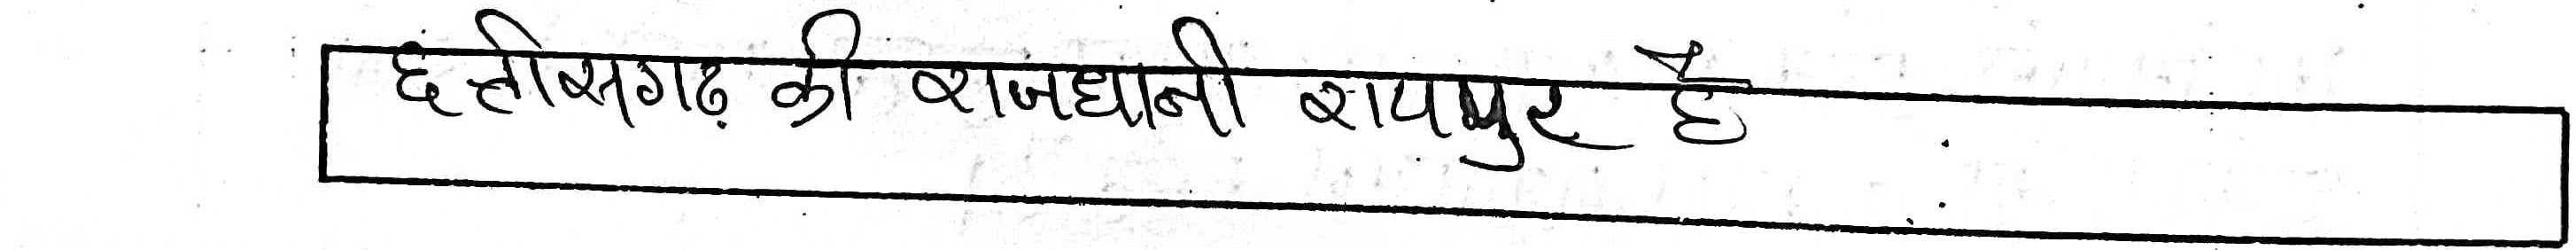 छत्तीसगढ़ की राजधानी रायपुर है